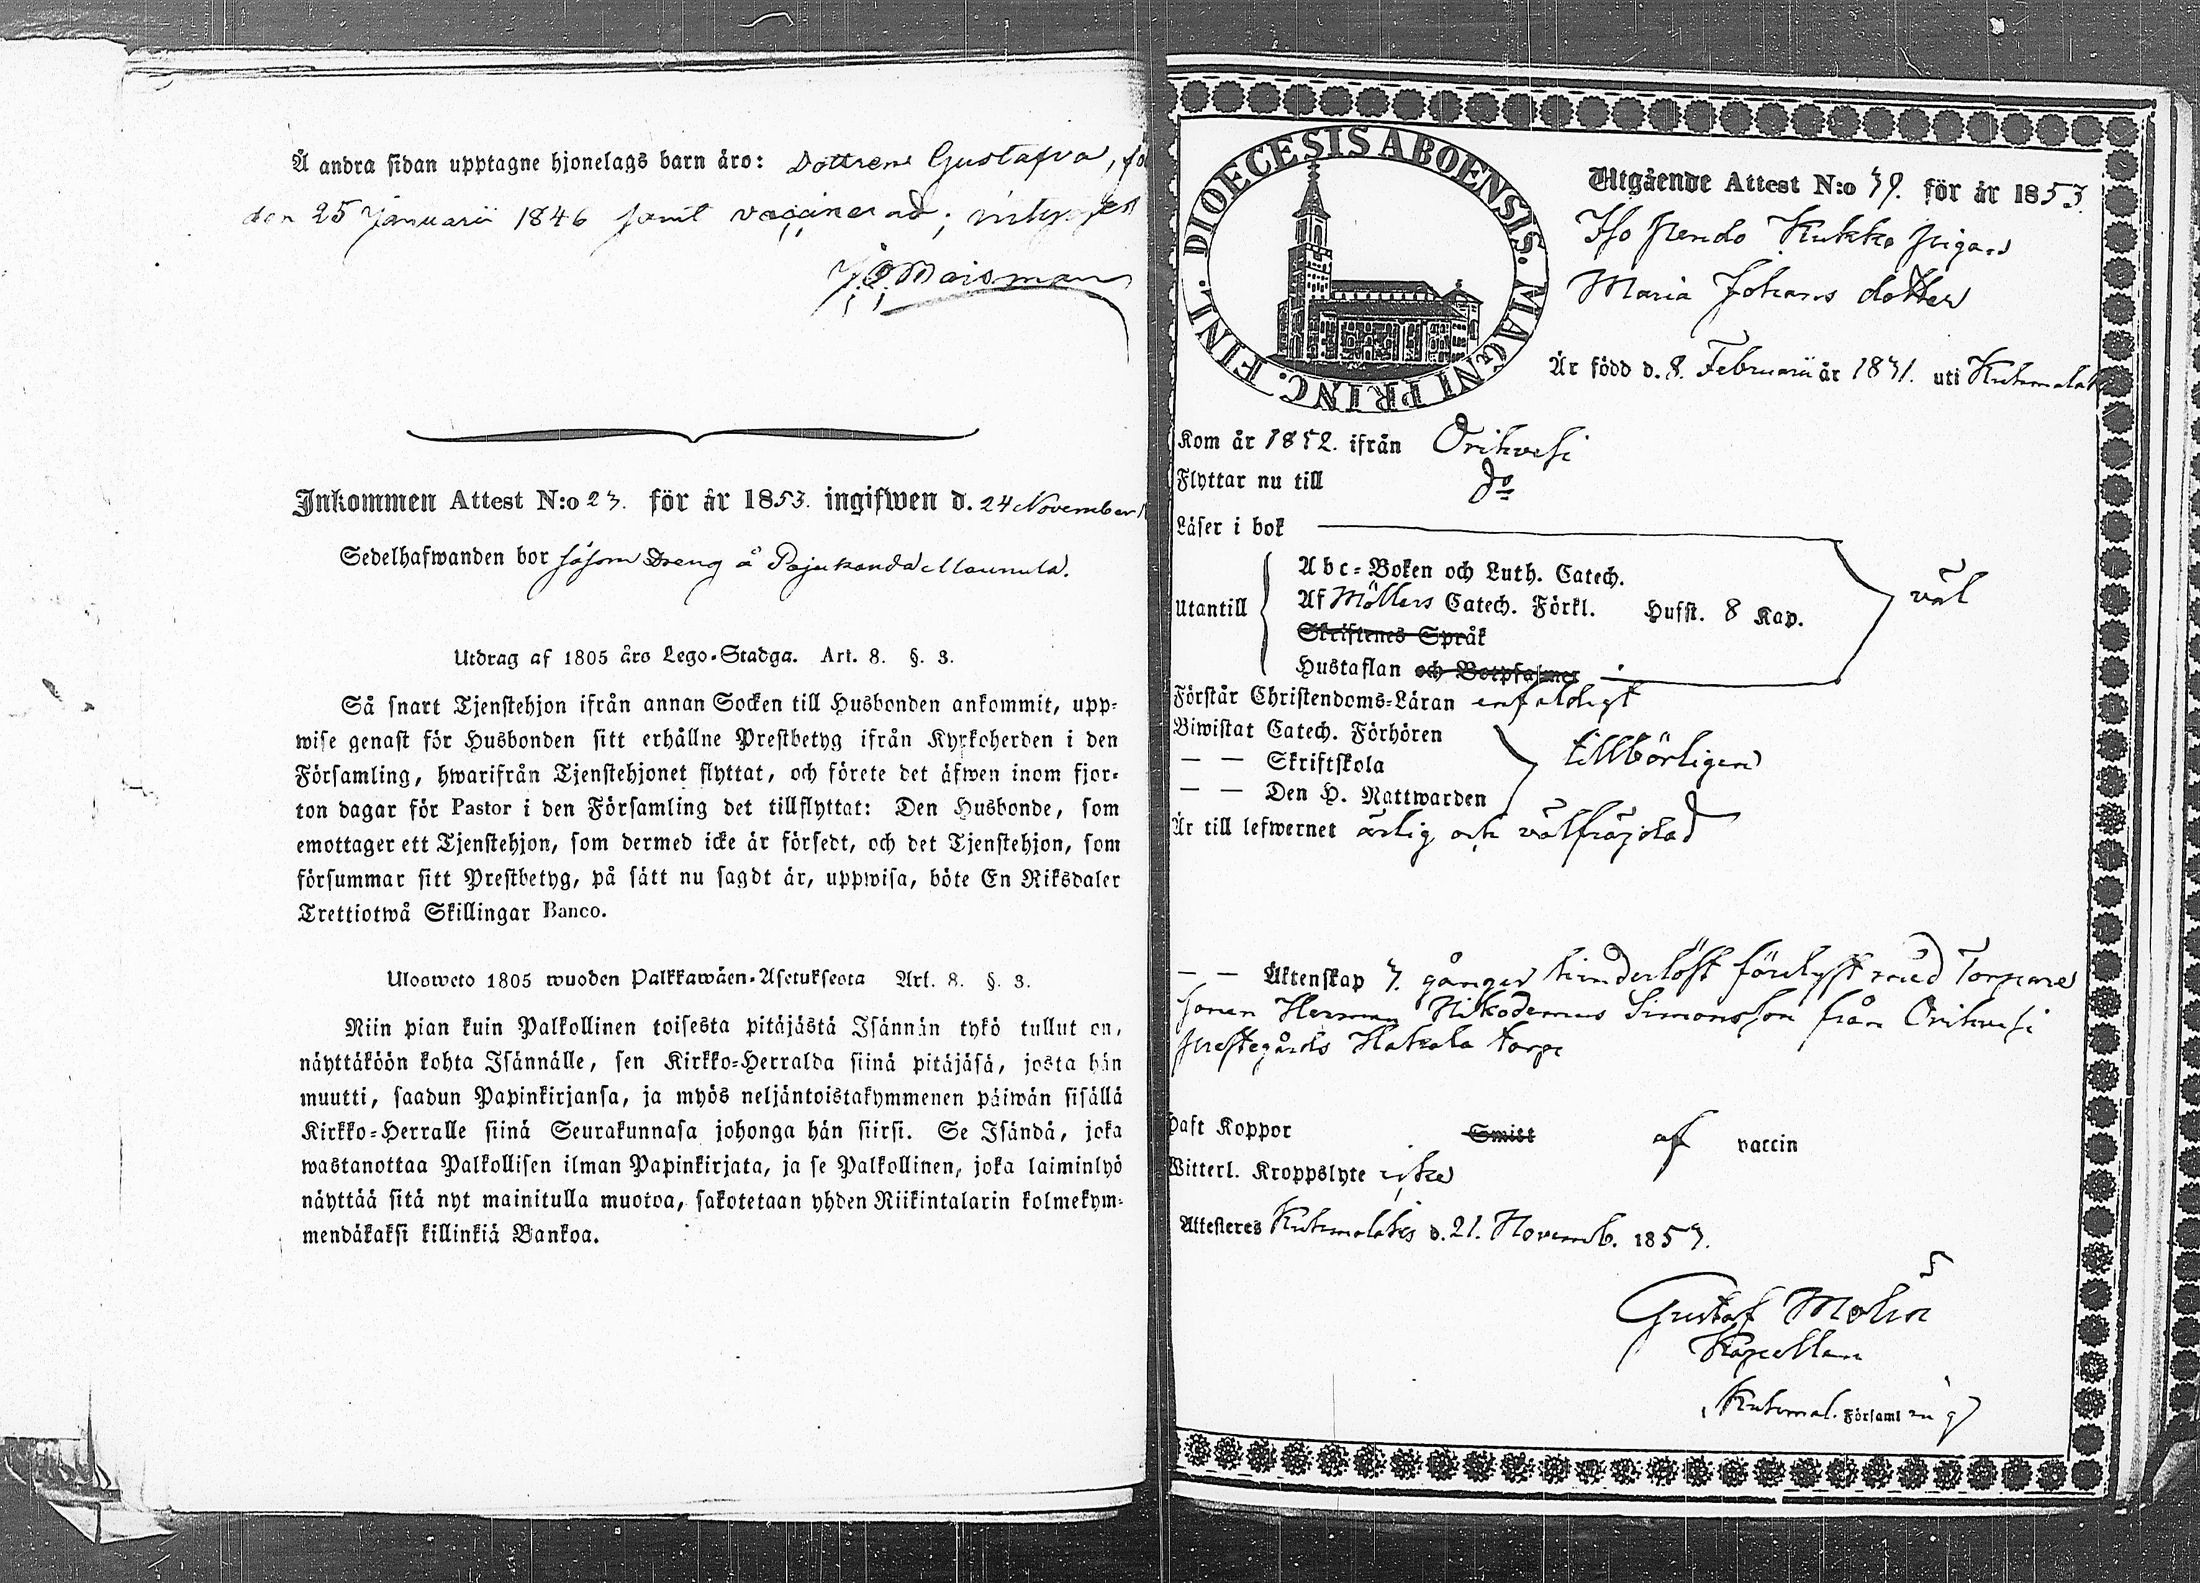 Å andra sidan upptagne hjonelags barn äro: Dottren Gustafva,
den 25 Januarii 1846 samt vaccinerad;
Inkommen Attest N:o 23. för år 1853. ingifwen d. 24 November
Sedelhafwanden bor såsom Dreng å Pajukanda Maunula.
Utdrag af 1805 års Lego-Stadga. Art. 8. §. 3.
Så snart Tjenstehjon ifrån annan Socken till Husbonden ankommit, upp-
wise genast för Husbonden sitt erhållne Prestbetyg ifrån Kyrkoherden i den
Församling, hwarifrån Tjenstehjonet flyttat, och förete det äfwen inom fjor-
ton dagar för Pastor i den Församling det tillflyttat: Den Husbonde, som
emottager ett Tjenstehjon, som dermed icke är försedt, och det Tjenstehjon, som
försummar sitt Prestbetyg, på sätt nu sagdt är, uppwisa, böte En Riksdaler
Trettiotwå Skillingar Banco.
Ulosweto 1805 wuoden Palkkawäen-Asetuksesta Art. 8. §. 3.
Niin pian kuin Palkollinen toisesta pitäjästä Isännän tykö tullut on,
näyttäköön kohta Isännälle, sen Kirkko-Herralda siinä pitäjäsä, josta hän
muutti, saadun Papinkirjansa, ja myös neljäntoistakymmenen päiwän sisällä
Kirkko-Herralle siinä Seurakunnasa johonga hän siirsi. Se Isändä, joka
wastanottaa Palkollisen ilman Papinkirjata, ja se Palkollinen, joka laiminlyö
näyttää sitä nyt mainitulla muotoa, sakotetaan yhden Riikintalarin kolmekym-
mendäkaksi killinkiä Bankoa.
DIOECESIS ABOENSIS. MAGNI PRINC. FINL.
Utgående Attest N:o 39. för år 1853
Kukko pigan
Maria Johans dotter
Är född d. 8. Februarii år 1831. uti Kuhmalaks
Kom år 1852. ifrån Orihvesi
Flyttar nu till do
Läser i bok
Utantill
Abc-Boken och Luth. Catech.
Af Möllers Catech. Förkl. Hufst. 8 Kap.
Skriftenes Språk
Hustaflan och Botpsalmer
väl
Förstår Christendoms-Läran enfaldigt
Biwistat Catech. Förhören
— — Skriftskola
— — Den H. Nattwarden
tillbörligen
Är till lefwernet ärlig och välfräjdad
— — Äktenskap 3. gånger hinderlöst förelyst med Torpare
sonen Herman Nikodemus Simonsson från Orihvesi
prestegårds Hakala torp
Haft Koppor Smitt af vaccin
Witterl. Kroppslyte icke
Attesteres Kuhmalaks d. 21. Novemb. 1853.
Gustaf Molin
Kapellan
Kuhmal. Församling